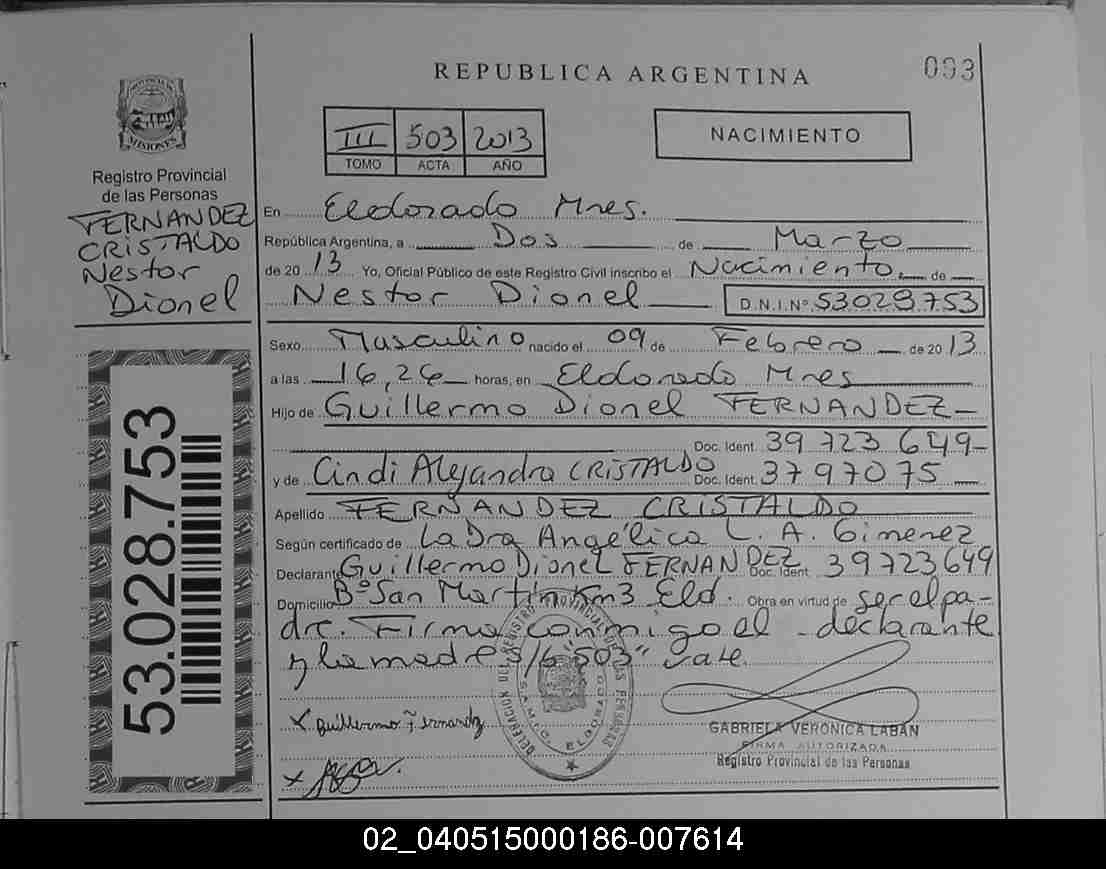 REPUBLICA ARGENTINA
093
PROVINCIA DE
MISIONES
Registro Provincial
de las Personas
FERNANDEZ
CRISTALDO
Nestor
Dionel
53.028.753
III 503 2013
TOMO ACTA AÑO
NACIMIENTO
En Eldorado Mnes.
República Argentina, a Dos de Marzo
de 20 13 Yo, Oficial Público de este Registro Civil inscribo el Nacimiento de
Nestor Dionel D.N.I.Nº 53028753
Sexo Masculino nacido el 09 de Febrero de 20 13
a las 16,26 horas, en Eldorado Mnes
Hijo de Guillermo Dionel FERNANDEZ
Doc. Ident. 39 723 649
y de Cindi Alejandra CRISTALDO Doc. Ident. 37 97075
Apellido FERNANDEZ CRISTALDO
Según certificado de La Dra Angélica L. A. Gimenez
Declarante Guillermo Dionel FERNANDEZ Doc. Ident. 39723649
Domicilio Bº San Martin Km3 Eld. Obra en virtud de ser el pa-
dre. Firma conmigo el declarante
y la madre S/6 "503" Vale.
x Guillermo Fernandez
x
DELEGACION DEL REGISTRO PROVINCIAL DE LAS PERSONAS
S.A.M.I.C. ELDORADO
GABRIELA VERONICA LABAN
FIRMA AUTORIZADA
Registro Provincial de las Personas
02_040515000186-007614